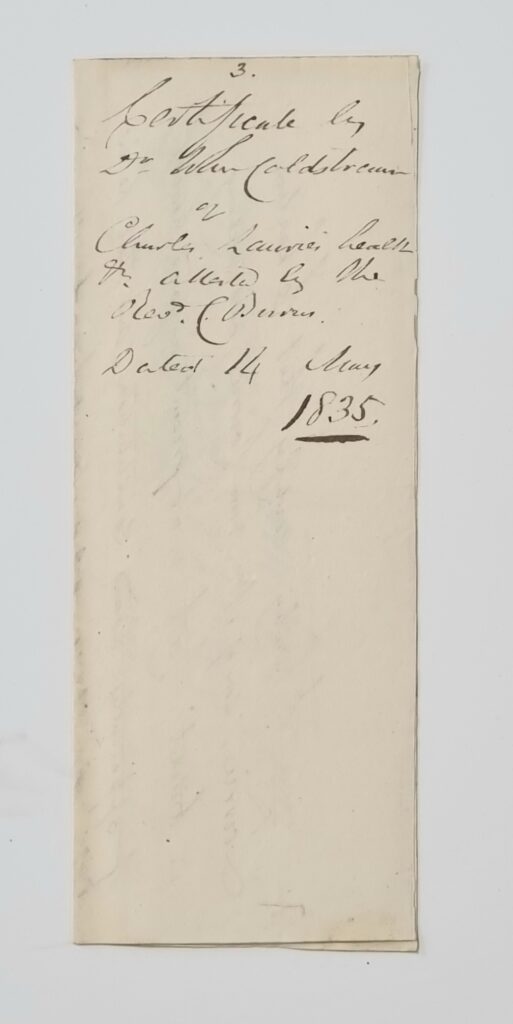 3.
Certificate by
Dr. John Coldstream
of
Charles Lawries health
&c. attested by the
Revd. C Burns.
Dated 14 May
1835.